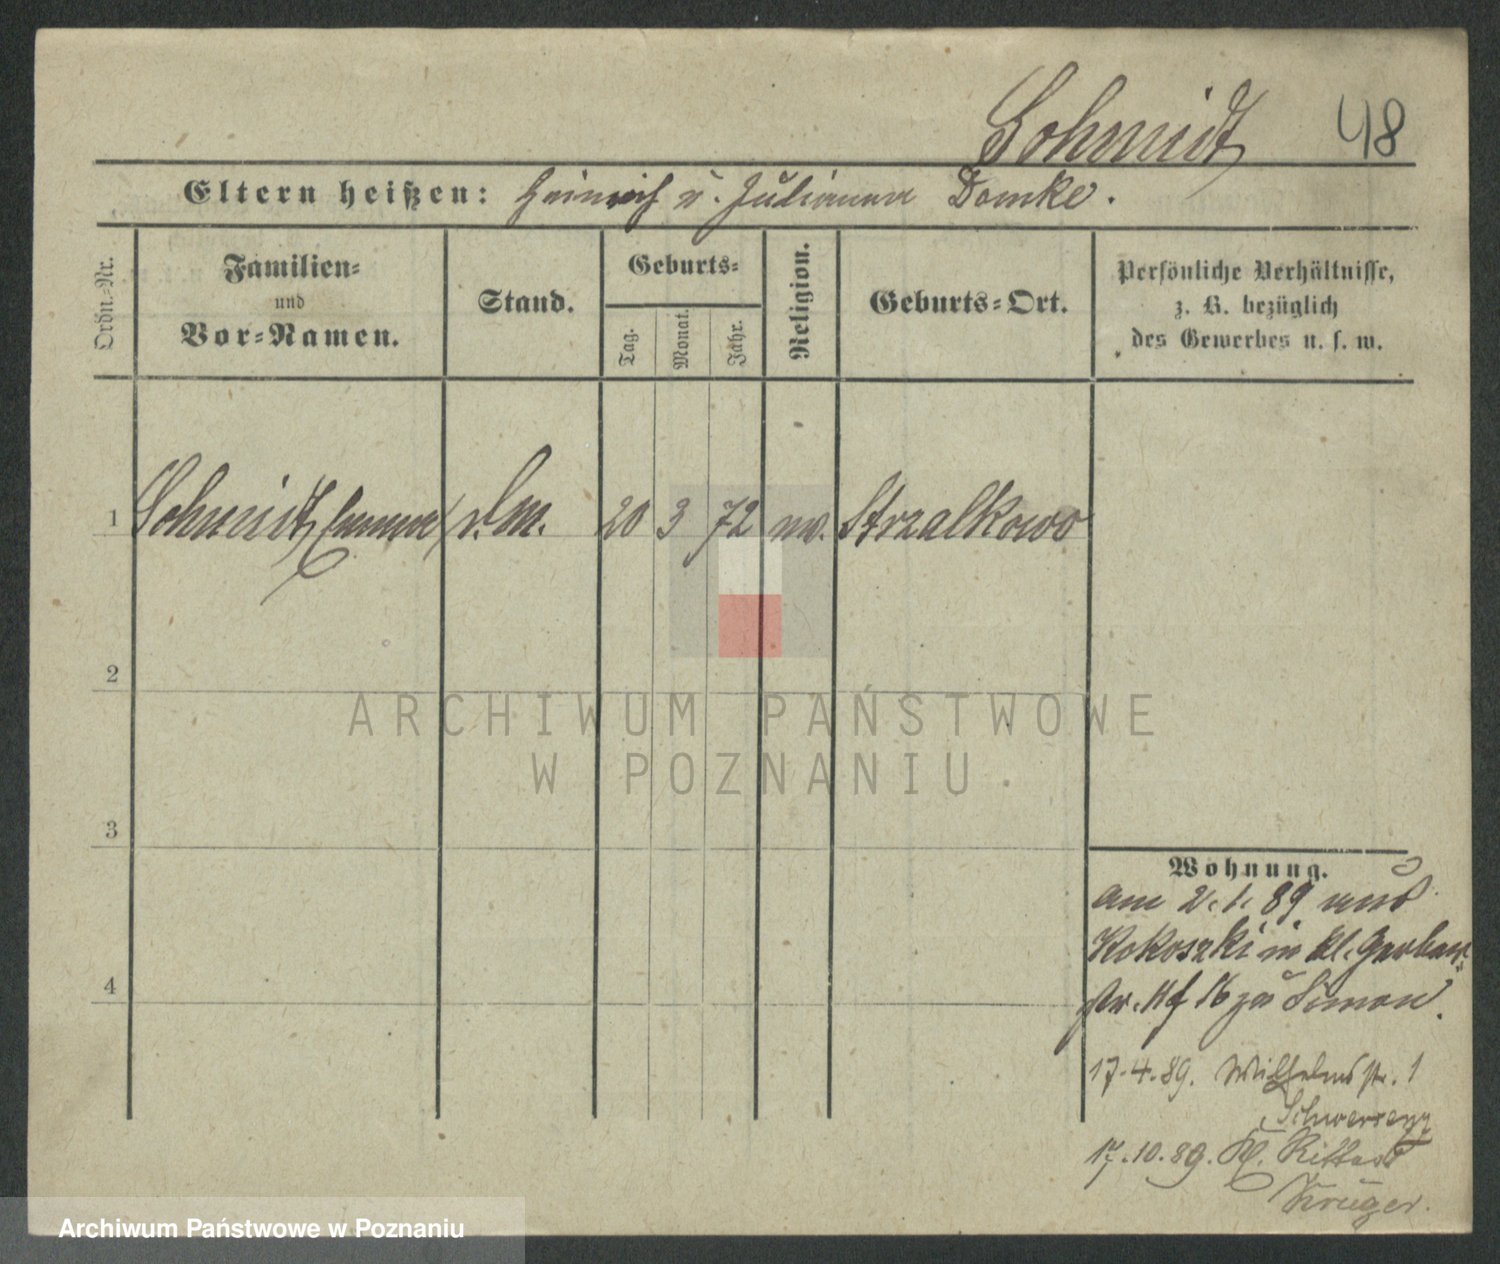 Schmidt 48
Eltern heißen: Heinrich u. Julianna Domke.
Ordn.-Nr.
Familien-
und
Vor-Namen.
Stand.
Geburts-
Tag. Monat. Jahr.
Religion.
Geburts-Ort.
Persönliche Verhältnisse,
z. B. bezüglich
des Gewerbes u. s. w.
1 Schmidt, Emma 20 3 72 Strzalkowo
2
3
4
Wohnung.
am 2. 1. 89 aus
Kokoszki in kl. Gerber
str. 16 zu Simon.
17.4.89. Wilhelmstr. 1
Schwersenz
17.10.89. Kl. Ritterst
Krüger.
ARCHIWUM PAŃSTWOWE
W POZNANIU
Archiwum Państwowe w Poznaniu